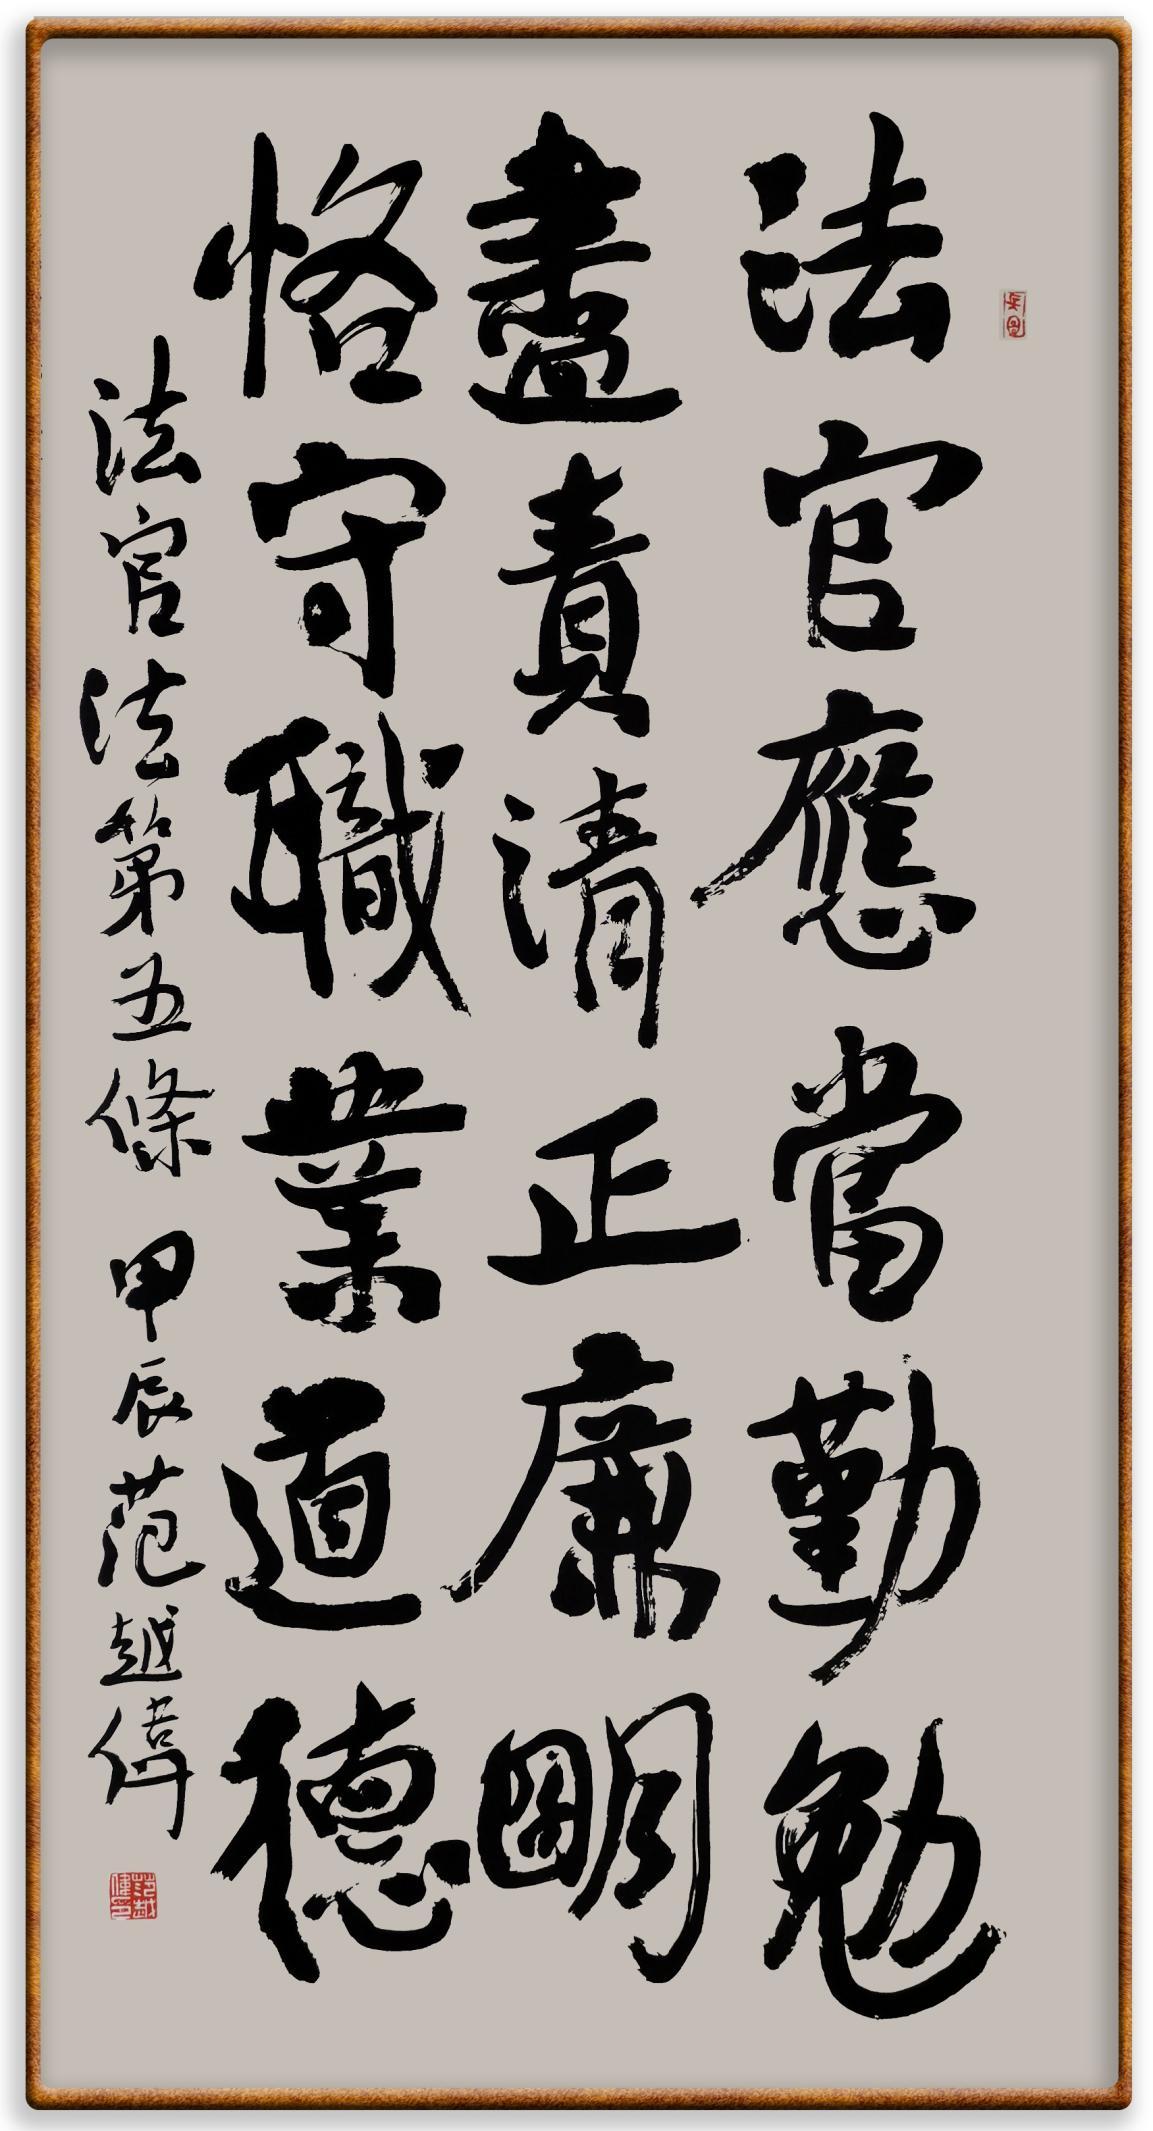 法官應當勤勉
盡責清正廉朙
恪守職業道德
法官法第五條 甲辰范越偉
范越偉印